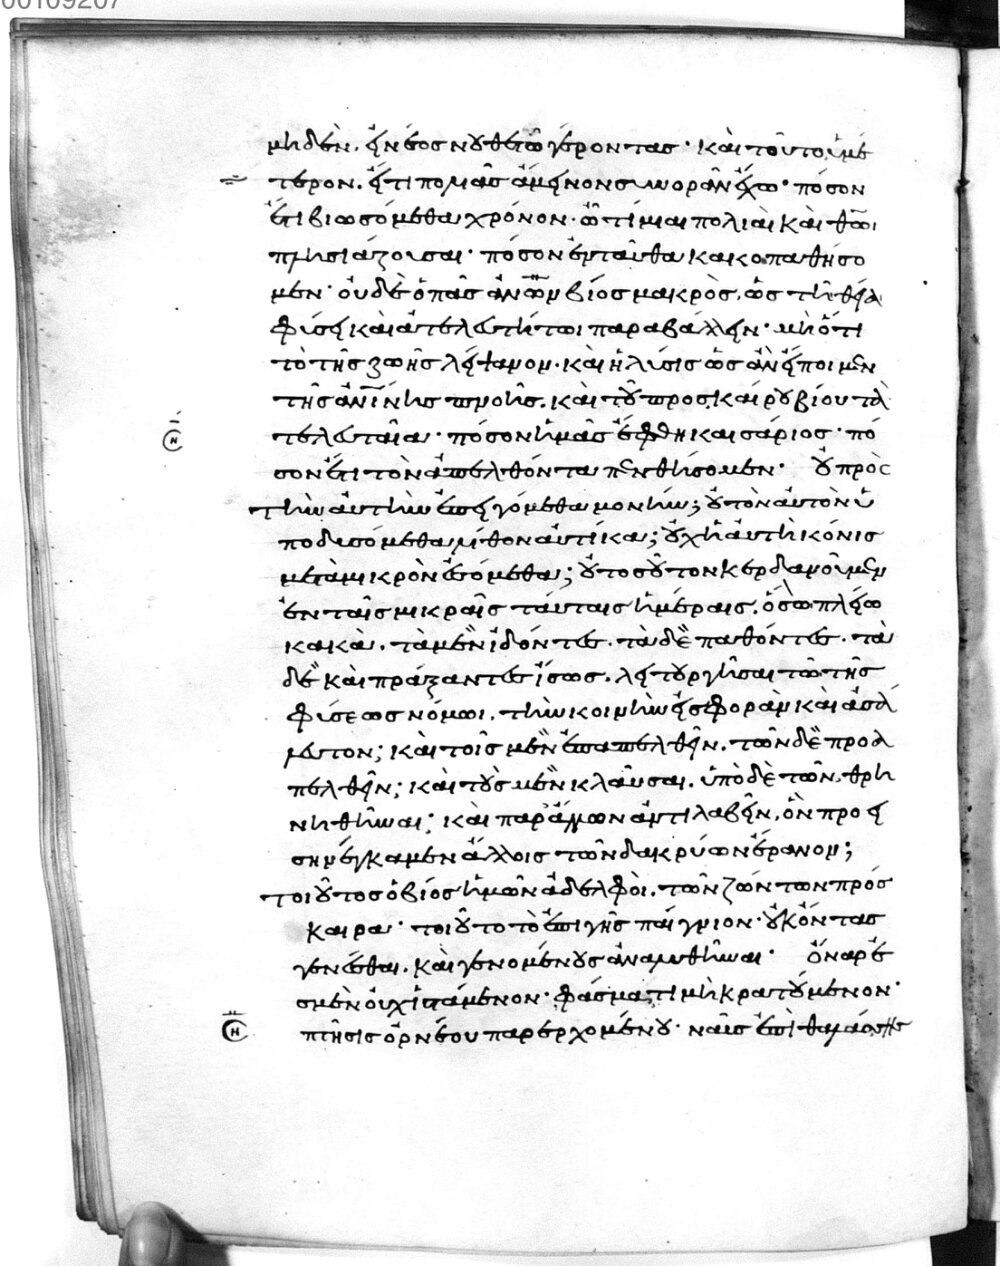 00109207
μηδὲν. εἰ νέος νουθετῶ γέροντας· καὶ τοῦτο ὑμέ
τερον. εἴ τι πολιᾶς ἄμεινον συνορᾶν ἔχω· πόσον
ἔτι βιωσόμεθα χρόνον· ὦ τίμιαι πολιαὶ καὶ θῶι
πλησιάζουσαι· πόσον ἐνταῦθα κακοπαθήσο
μεν· οὐδὲ ὁ πᾶς ἀνων βίος μακρὸς, ὡς τῆ θείαι
φύσει καὶ ἀτελευτήτωι παραβάλλειν· μὴ ὅτι
τὸ τῆς ζωῆς λείψανον· καὶ ἡ λύσις ὡς ἂν εἴποιμεν
τῆς ἀνίνης πνοῆς. καὶ τοῦ προσκαίρου βίου τὰ
τελευταῖα· πόσον ἡμᾶς ἔφθη καισάριος· πό
σον ἔτι τὸν ἀπελθόντα πενθήσομεν· οὐ πρὸς
τὴν αὐτὴν ἐπειγόμεθα μονήν; οὐ τὸν αὐτὸν ὑ
ποδυσόμεθα λίθον αὐτίκα; οὐχ ἡ αὐτὴ κόνις
μετὰ μικρὸν ἐσόμεθα; οὐ τοσοῦτον κερδανοῦμεν
ἐν ταῖς μικραῖς ταύταις ἡμέραις. ὅσω πλείω
κακὰ. τὰ μὲν ἰδόντες. τὰ δὲ παθόντες. τὰ
δὲ καὶ πράξαντες ἴσως. λειτουργῆσαι τῶ τῆς
φύσεως νόμωι. τὴν κοινὴν εἰσφορὰν καὶ ἀσά
λευτον; καὶ τοῖς μὲν ἐπαπελθεῖν. τῶν δὲ προα
πελθεῖν; καὶ τοὺς μὲν κλαῦσαι. ὑπὸ δὲ τῶν θρη
νηθῆναι; καὶ παρ' ἄλλων ἀντιλαβεῖν, ὃν προει
σηνέγκαμεν ἄλλοις τῶν δακρύων ἔρανον;
τοιοῦτος ὁ βίος ἡμῶν ἀδελφοὶ. τῶν ζώντων πρόσ
καιρα· τοιοῦτο τὸ ἐπὶ γῆς παίγνιον· οὐκ ὄντας
γενέσθαι. καὶ γενομένους ἀναλυθῆναι· ὄναρ ἐ
σμὲν οὐχ ἱστάμενον· φάσμα τι μὴ κρατούμενον·
πτῆσις ὀρνέου παρερχομένου· ναῦς ἐπὶ θαλάσσης